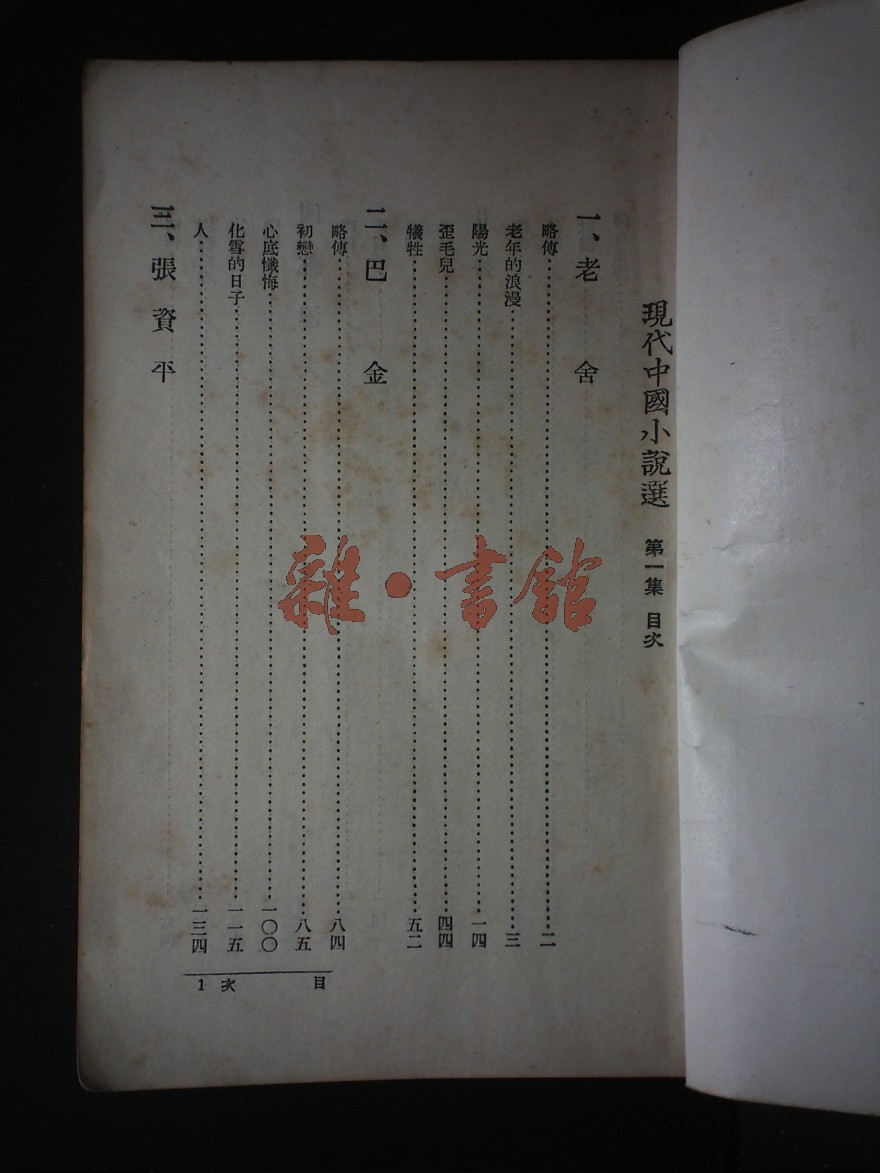 現代中國小說選 第一集 目次
一、老舍
略傳⋯⋯二
老年的浪漫⋯⋯三
陽光⋯⋯一四
歪毛兒⋯⋯四四
犧牲⋯⋯五二
二、巴金
略傳⋯⋯八四
初戀⋯⋯八五
心底懺悔⋯⋯一〇〇
化雪的日子⋯⋯一一五
人⋯⋯一三四
三、張資平
目次 1
雜·書館